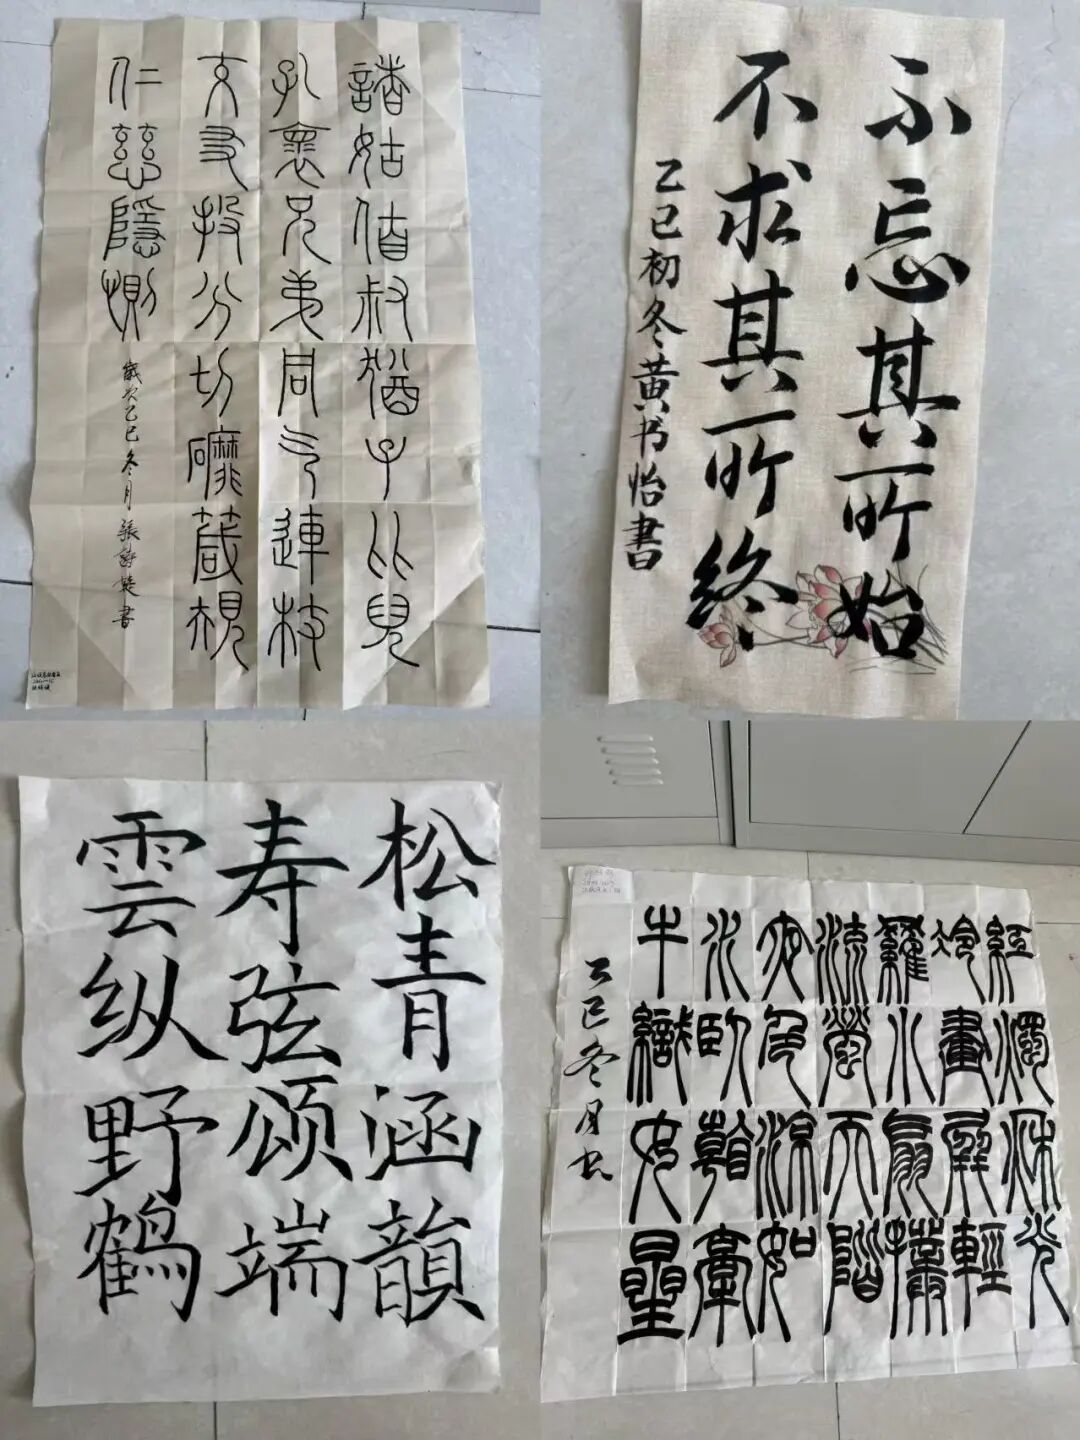 諸姑伯叔猶子比兒
孔懷兄弟同气連枝
交友投分切磨箴規
仁慈隱惻
歲次乙巳冬月張書
不忘其所始
不求其所終
乙巳初冬黄书怡書
松青涵韻
寿弦颂端
雲纵野鹤
紅燭秋光
冷畫屏輕
羅小扇撲
流螢天階
夜色涼如
水臥看牽
牛織女星
乙巳冬月书